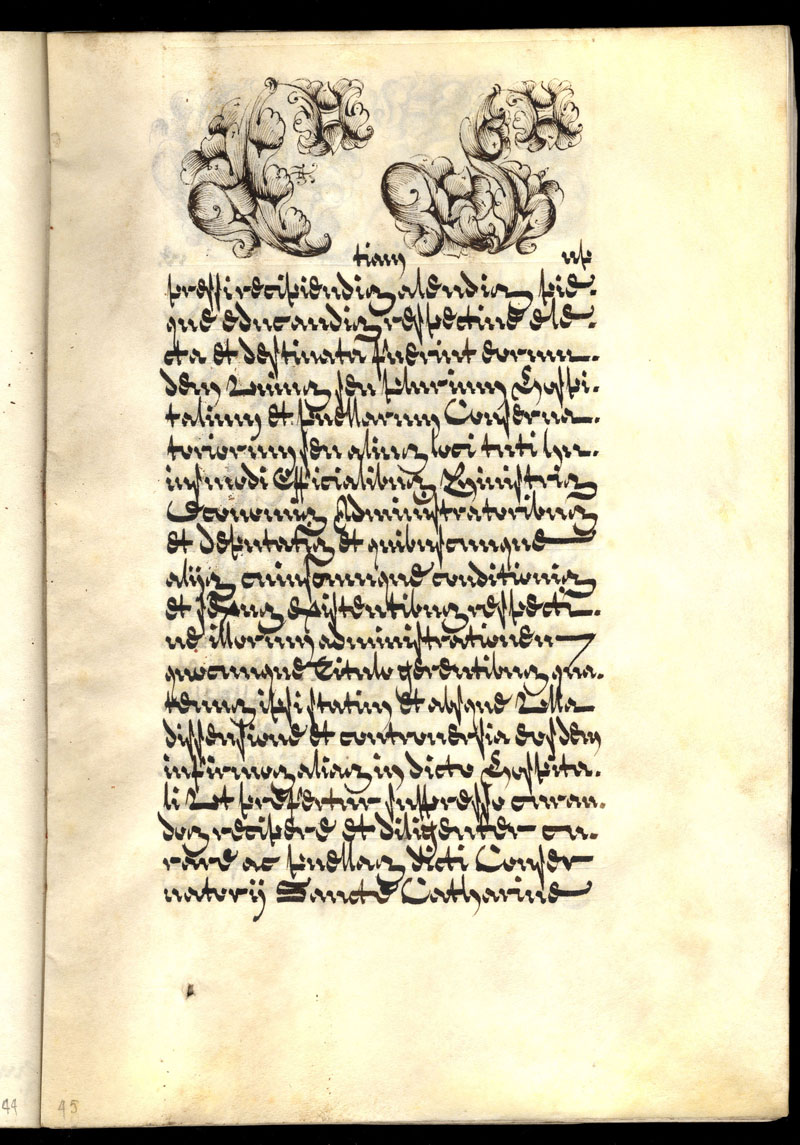 Etiam Sup
pressi recipiendis alendis piè.
que educandis respectiuè ele.
cta et destinata fuerint eorum.
dem Vnius seu plurium Hospi.
talium et puellarum Conserua.
toriorum seu alius loci tuti hu.
iusmodi Officialibus Ministris
Oeconomis Administratoribus
et deputatis et quibuscunque
alijs cuiuscunque conditionis
et sexus existentibus respecti.
ue illorum administrationem
quocunque Titulo gerentibus qua.
tenus ipsi statim et absque Vlla
dissensione et controuersia eosdem
infirmos alias in dicto Hospita.
li Vt prefertur suppresso curan.
dos recipere et diligenter cu.
rare ac puellas dicti Conser
uatorij Sancte Catharine
44 45